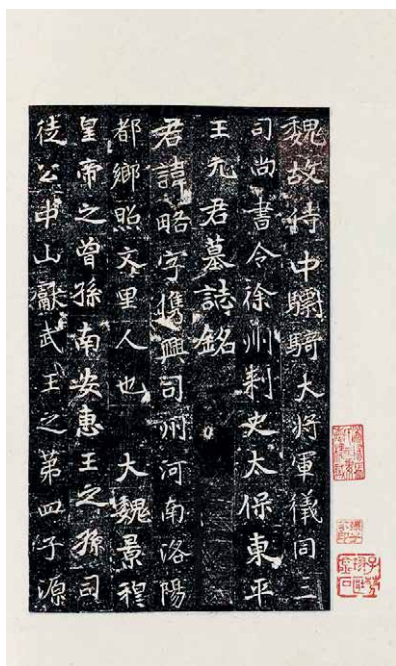 魏故侍中驃騎大將軍儀同三
司尚書令徐州刺史太保東平
王元君墓誌銘
君諱略字儁興司州河南洛陽
都鄉照文里人也 大魏景穆
皇帝之曾孫南安惠王之孫司
徒公中山獻武王之第四子源